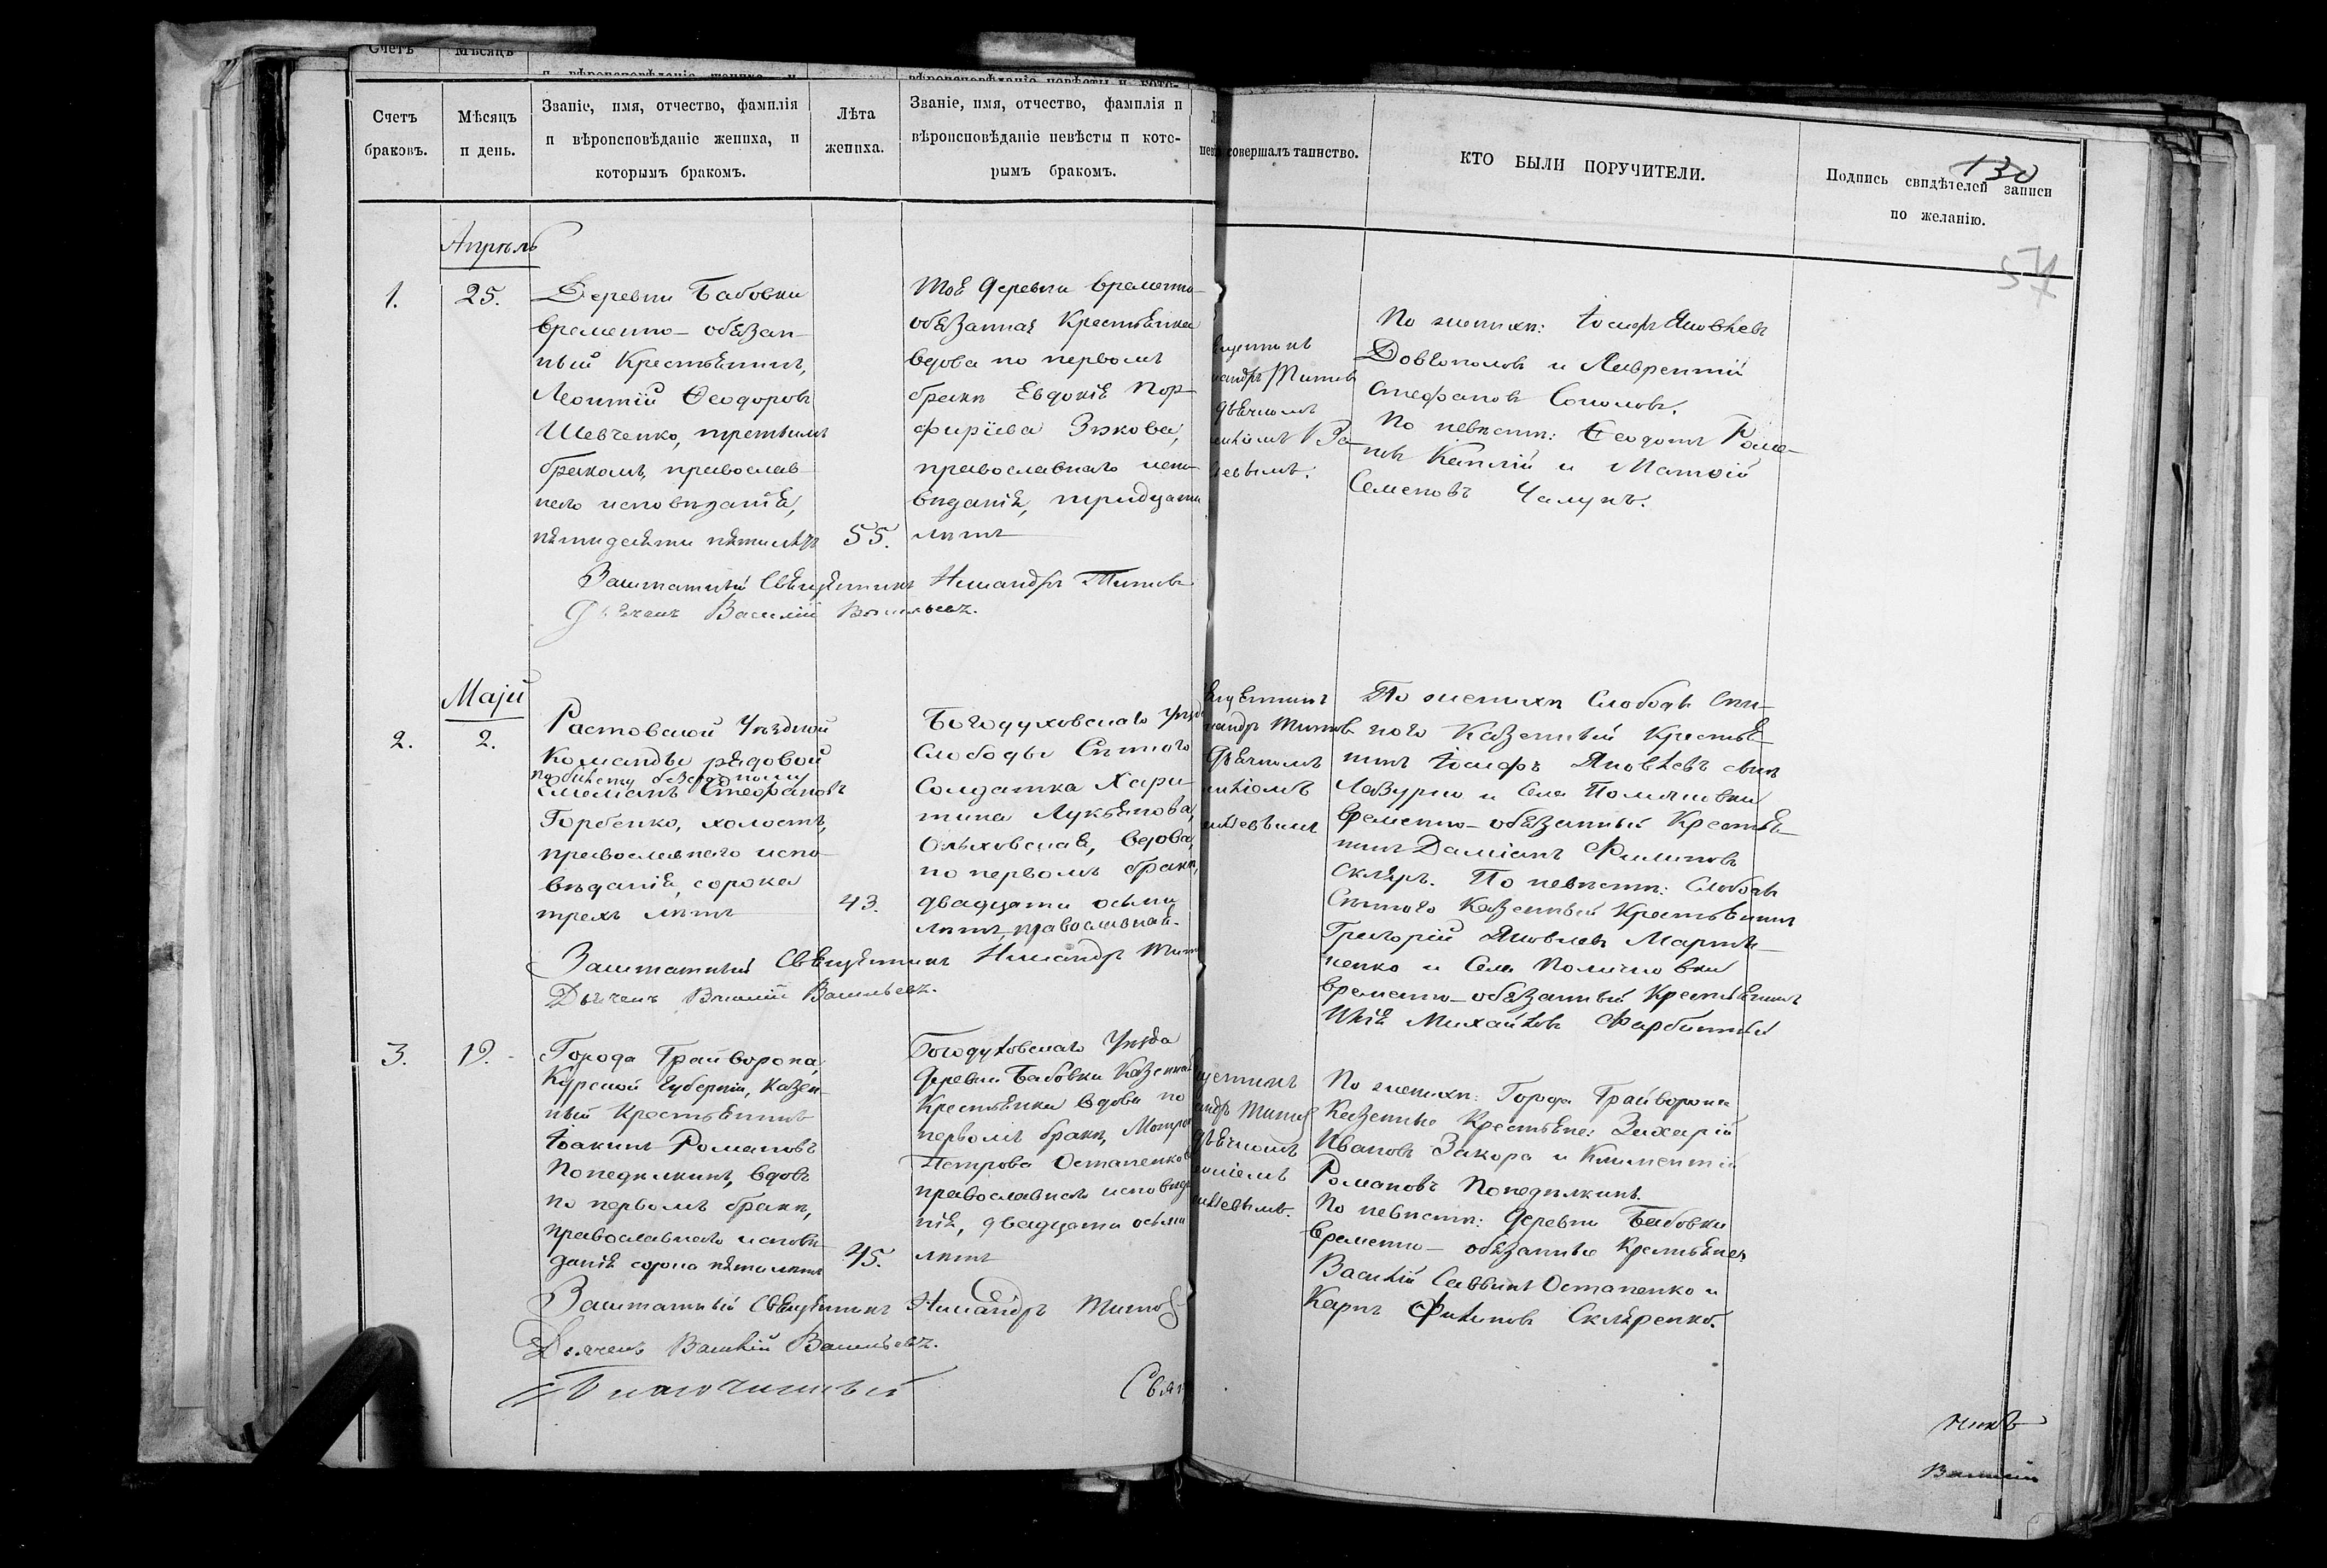 Счетъ
Мѣсяцъ
Счетъ
браковъ.
Мѣсяцъ
и день.
Званіе, имя, отчество, фамилія
и вѣроисповѣданіе жениха, и
которымъ бракомъ.
Лѣта
жениха.
Званіе, имя, отчество, фамилія и
вѣроисповѣданіе невѣсты и кото-
рымъ бракомъ.
совершалъ таинство.
КТО БЫЛИ ПОРУЧИТЕЛИ.
Подпись свидѣтелей записи
по желанію.
130
57
Апрѣль
1.
25.
Деревни Бабовки
временно-обязан-
ный Крестьянинъ,
Леонтій Ѳеодоровъ
Шевченко, третьимъ
бракомъ, православ-
наго исповѣданія,
пятидесяти пяти лѣтъ
55.
Тоя деревни временно-
обязанная Крестьянка
вдова по первомъ
бракѣ Евдокія Пор-
фиріева Зыкова,
православнаго испо-
вѣданія, тридцати
лѣтъ
Титовъ
По женихѣ: Іосифъ Яковлевъ
Довгополовъ и Лаврентій
Стефановъ Соколовъ.
По невѣстѣ: Ѳеодотъ Рома-
новъ Каплій и Матѳій
Семеновъ Чалукъ.
Заштатный Священникъ Никандръ Титовъ
Дьячекъ Василій Васильевъ.
Маій
2.
2.
Растовской Уѣздной
Команды рядовой
по билету
Емеліанъ Стефановъ
Горбенко, холостъ,
православнаго испо-
вѣданія, сорока
трехъ лѣтъ
43.
Богодуховскаго Уѣзда
Слободы Сѣннаго
Солдатка Хари-
тина Лукьянова
Ольховская, вдова,
по первомъ бракѣ,
двадцати осьми
лѣтъ, православная.
Титовъ
По женихѣ Слободы Сѣн-
наго Казенный Крестья-
нинъ Іосифъ Яковлевъ сынъ
Лазурко и Села
временно-обязанный Крестья-
нинъ Даміанъ Филиповъ
Скляръ. По невѣстѣ: Слободы
Сѣннаго Казенный Крестьянинъ
Григорій Яковлевъ Марты-
ненко и Села
временно-обязанный Крестьянинъ
Илія Михайловъ
Заштатный Священникъ Никандръ Титовъ
Дьячекъ Василій Васильевъ.
3.
19.
Города Грайворона,
Курской Губерніи, казен-
ный Крестьянинъ
Іоакимъ Романовъ
Понедѣлкинъ, вдовъ
по первомъ бракѣ,
православнаго исповѣ-
данія сорока пяти лѣтъ
45.
Богодуховскаго Уѣзда
деревни Бабовки Казенная
Крестьянка вдова по
первомъ бракѣ,
Петрова Остапенкова
православнаго исповѣда-
нія, двадцати осьми
лѣтъ
Титовъ
По женихѣ: Города Грайворона
Казенные Крестьяне: Захарій
Ивановъ Закора и Климентій
Романовъ Понедѣлкинъ.
По невѣстѣ: деревни Бабовки
временно-обязанные Крестьяне,
Василій Саввинъ Остапенко и
Карпъ Филиповъ Скляренко.
Заштатный Священникъ Никандръ Титовъ
Дьячекъ Василій Васильевъ.
Благочинный Свящ
никъ
Василій